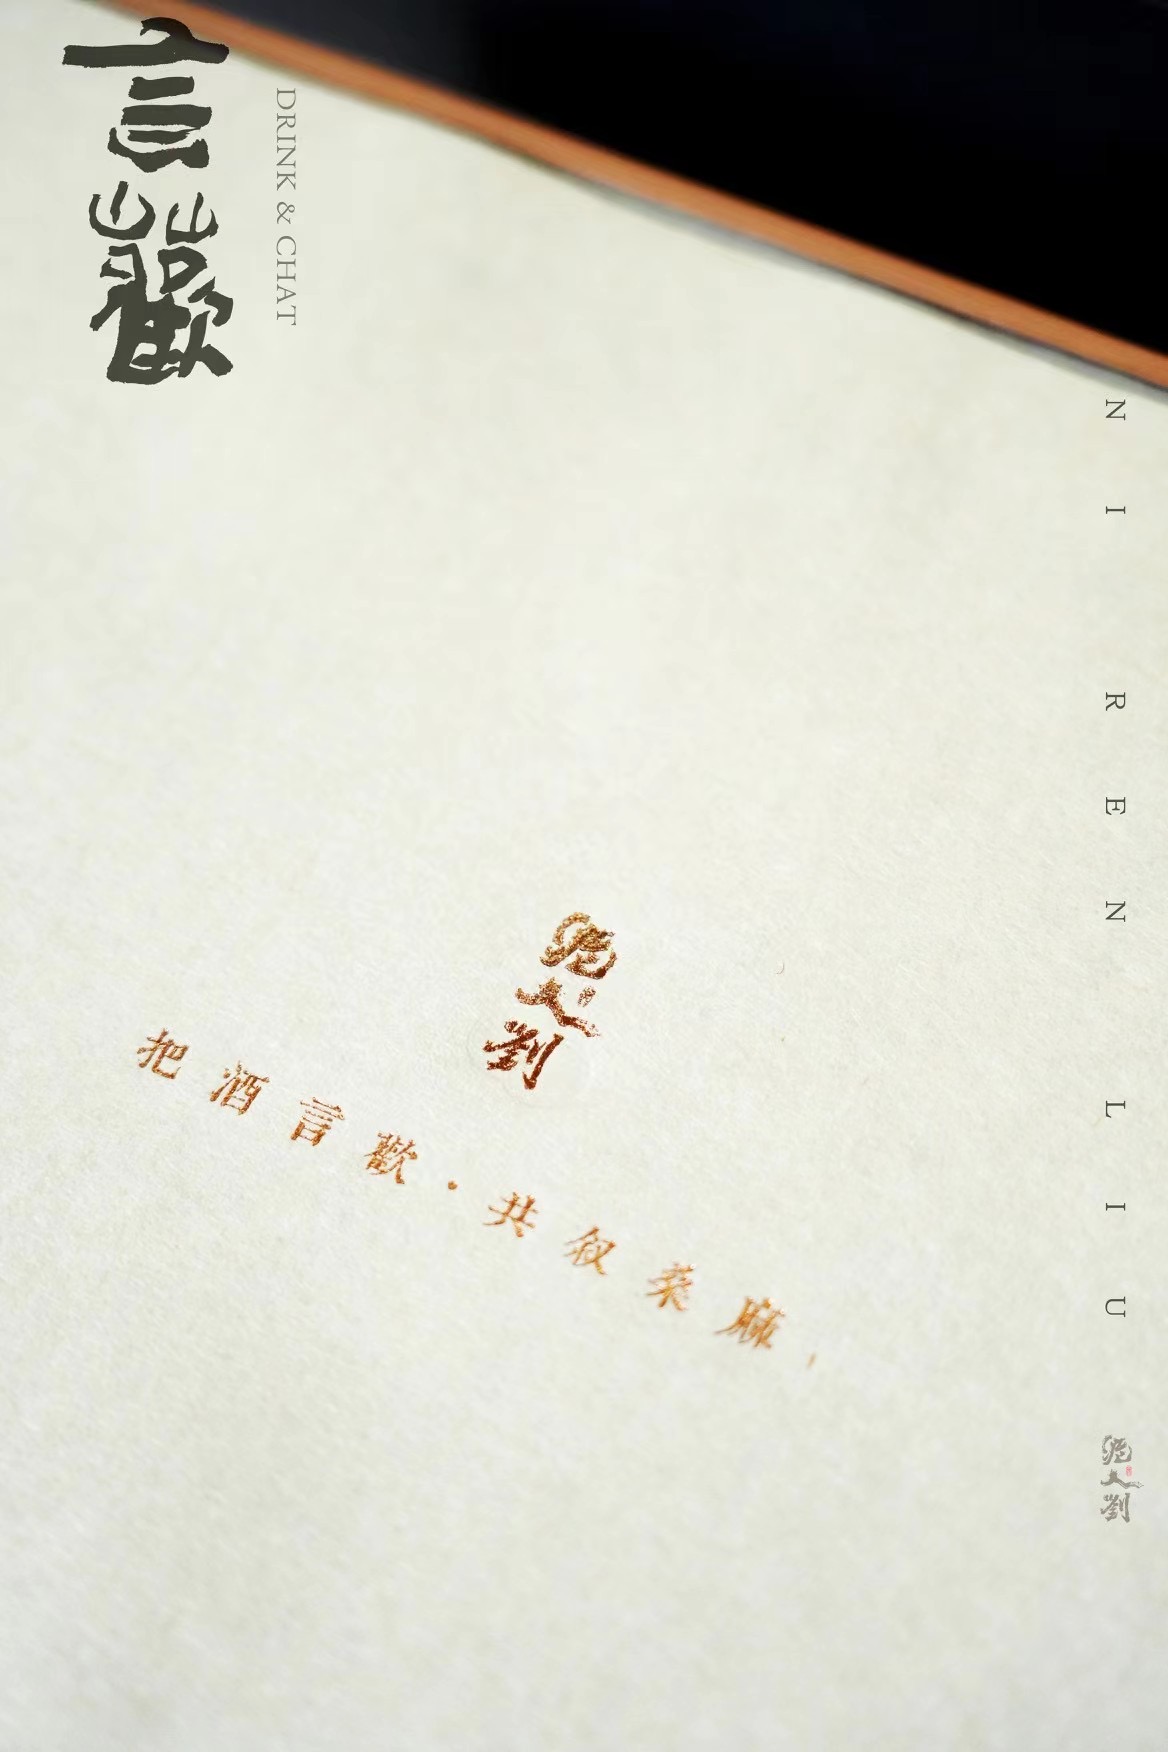 言歡
DRINK & CHAT
NI REN LIU
泥人劉
把酒言歡·共叙桑麻
泥人劉